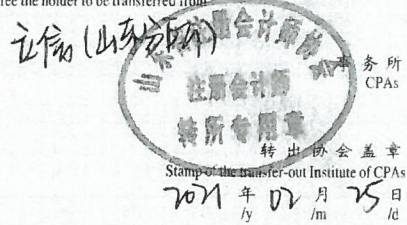 ree the holder to be transferred from
立信(山东分所)
事务所
CPAs
山东省注册会计师协会
注册会计师
转所专用章
转出协会盖章
Stamp of the transfer-out Institute of CPAs
2021 年 02 月 25 日
/y /m /d